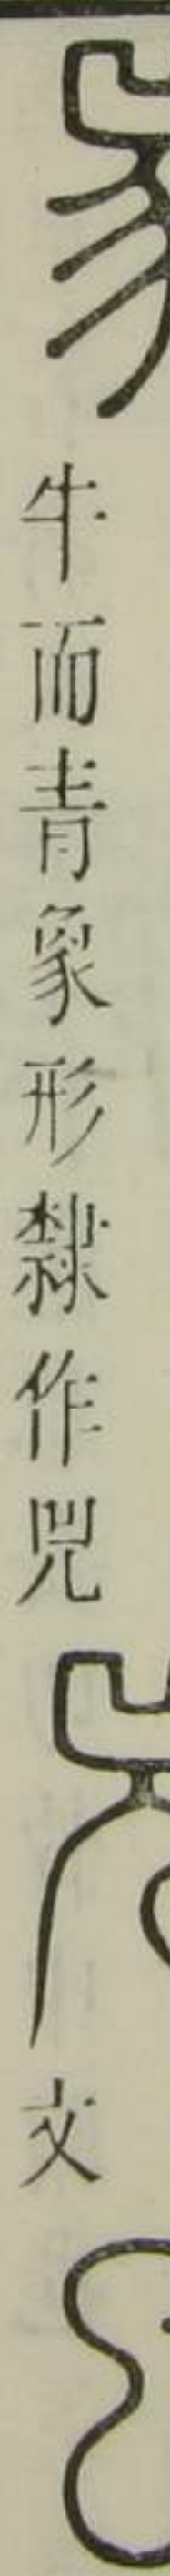 牛而青象形隸作兕
文